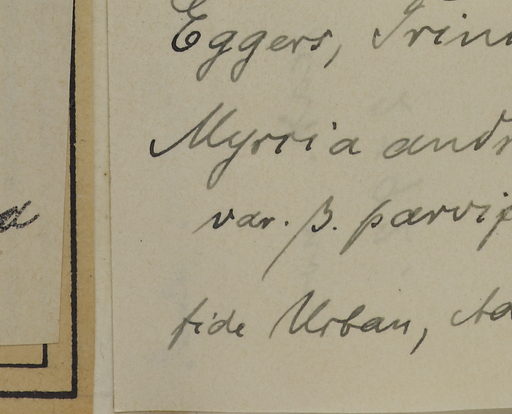 Eggers, Trin
Myrcia andr
var. β. parvif
fide Urban, Ad
a